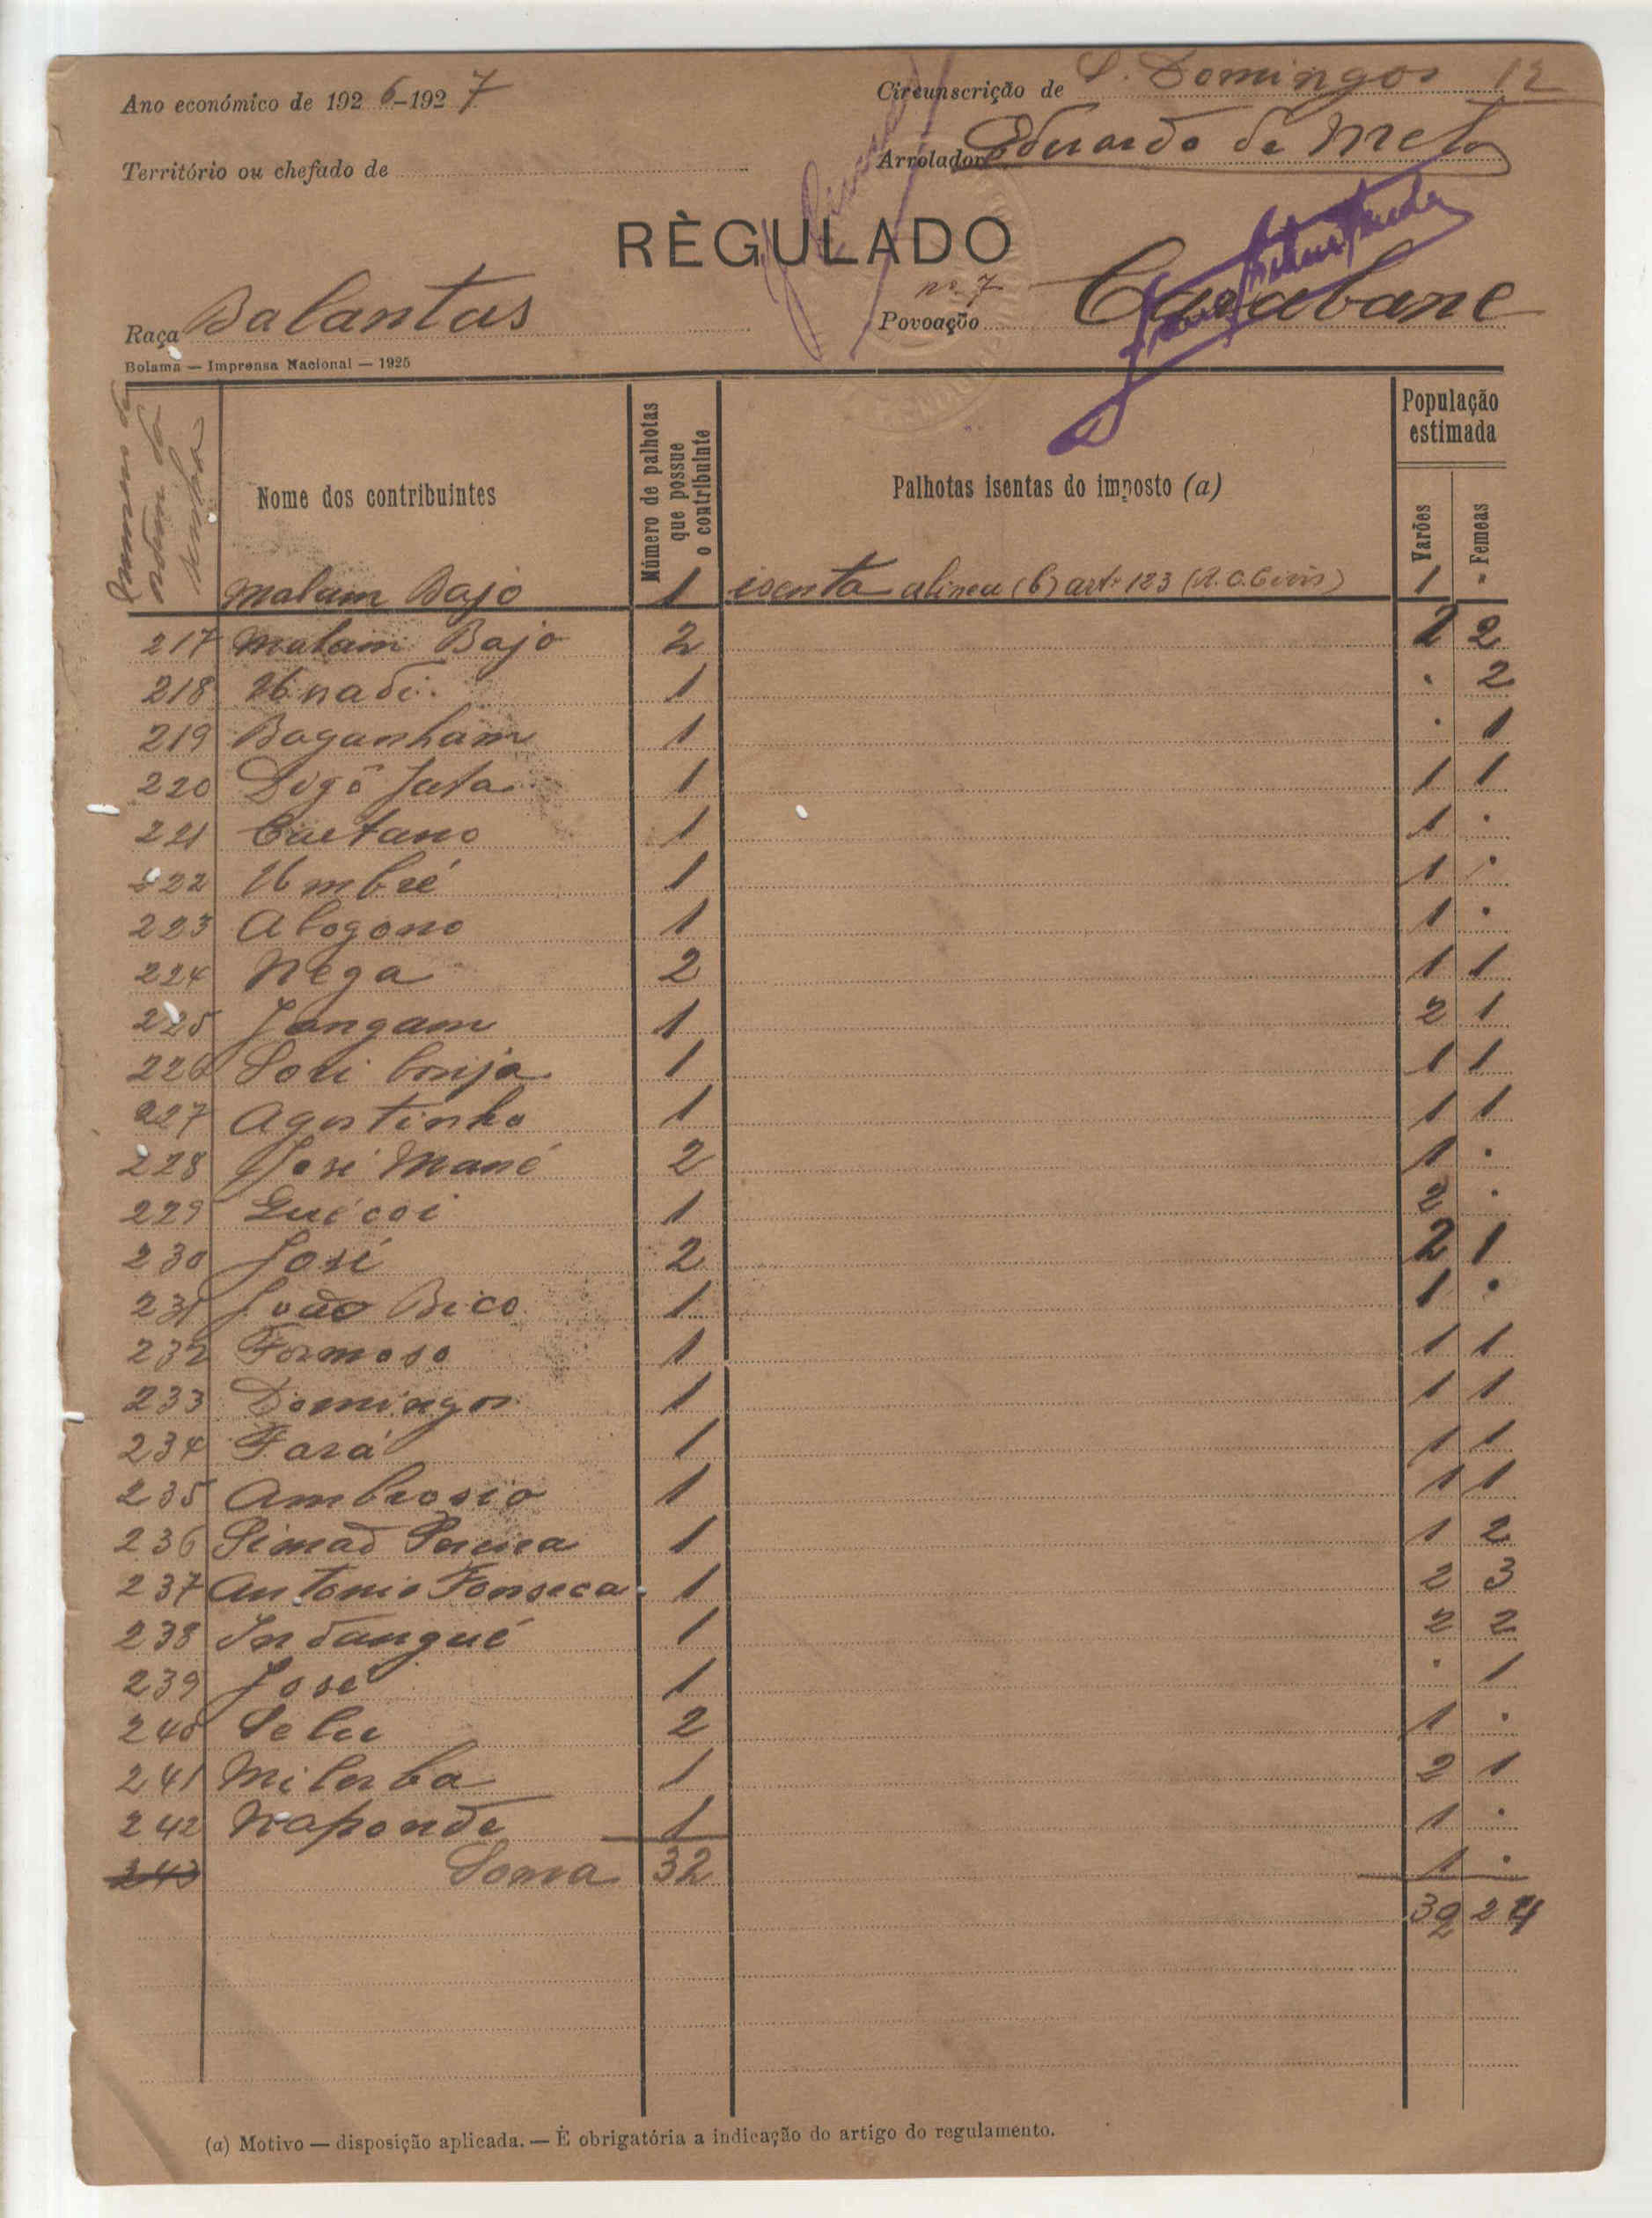 Ano económico de 1926-1927
Circunscrição de S. Domingos 12
Território ou chefado de
Arrolador Eduardo de Melo
RÈGULADO
Raça Balantas
nº 7
Povoação Carabane
Bolama — Imprensa Nacional — 1925
Nome dos contribuintes
Número de palhotas que possue o contribuinte
Palhotas isentas do imposto (a)
População estimada
Varões
Femeas
Malam Bajo 1 isenta alinea (b) artº 123 (R.C. Civis) 1 "
217 Malam Bajo 2 2 2
218 Unadi 1 . 2
219 Baganham 1 . 1
220 Digô Jata 1 1 1
221 Caetano 1 1 .
222 Umbré 1 1 .
223 Alogono 1 1 .
224 Nega 2 1 1
225 Jangam 1 2 1
226 Sori 1 1 1
227 Agostinho 1 1 1
228 José Mané 2 1 .
229 Guécoi 1 2 .
230 José 2 2 1
231 João Bico 1 1 .
232 Formoso 1 1 1
233 Domingos 1 1 1
234 Fará 1 1 1
235 Ambrosio 1 1 1
236 Simão Pereira 1 1 2
237 Antonio Fonseca 1 2 3
238 Indangué 1 2 2
239 José 1 . 1
240 Selu 2 1 .
241 Milonba 1 2 1
242 Naponde 1 1 .
243 Soma 32 1 .
32 24
(a) Motivo — disposição aplicada. — É obrigatória a indicação do artigo do regulamento.